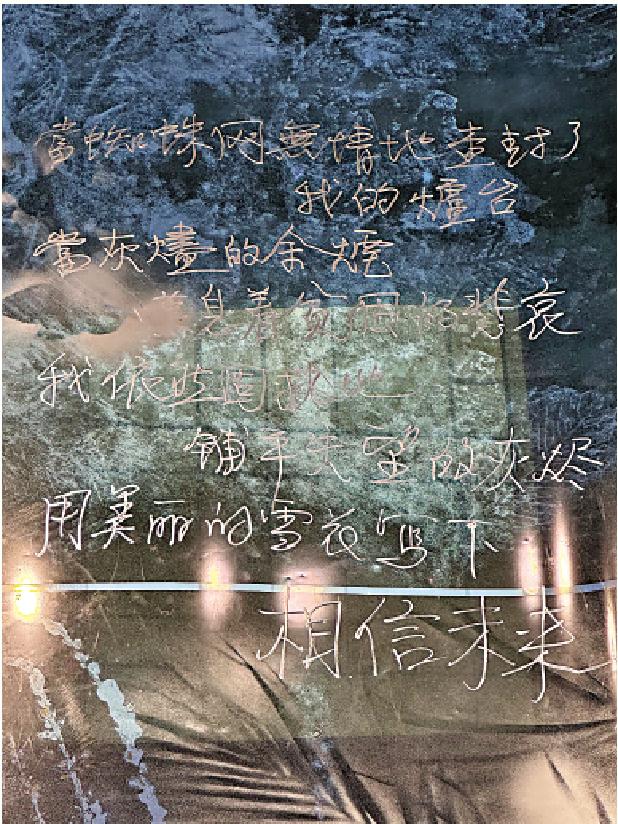 當蜘蛛网無情地查封了
我的爐台
當灰燼的余煙
息着貧困的悲哀
我依然固执地
铺平失望的灰烬
用美丽的雪花写下
相信未来